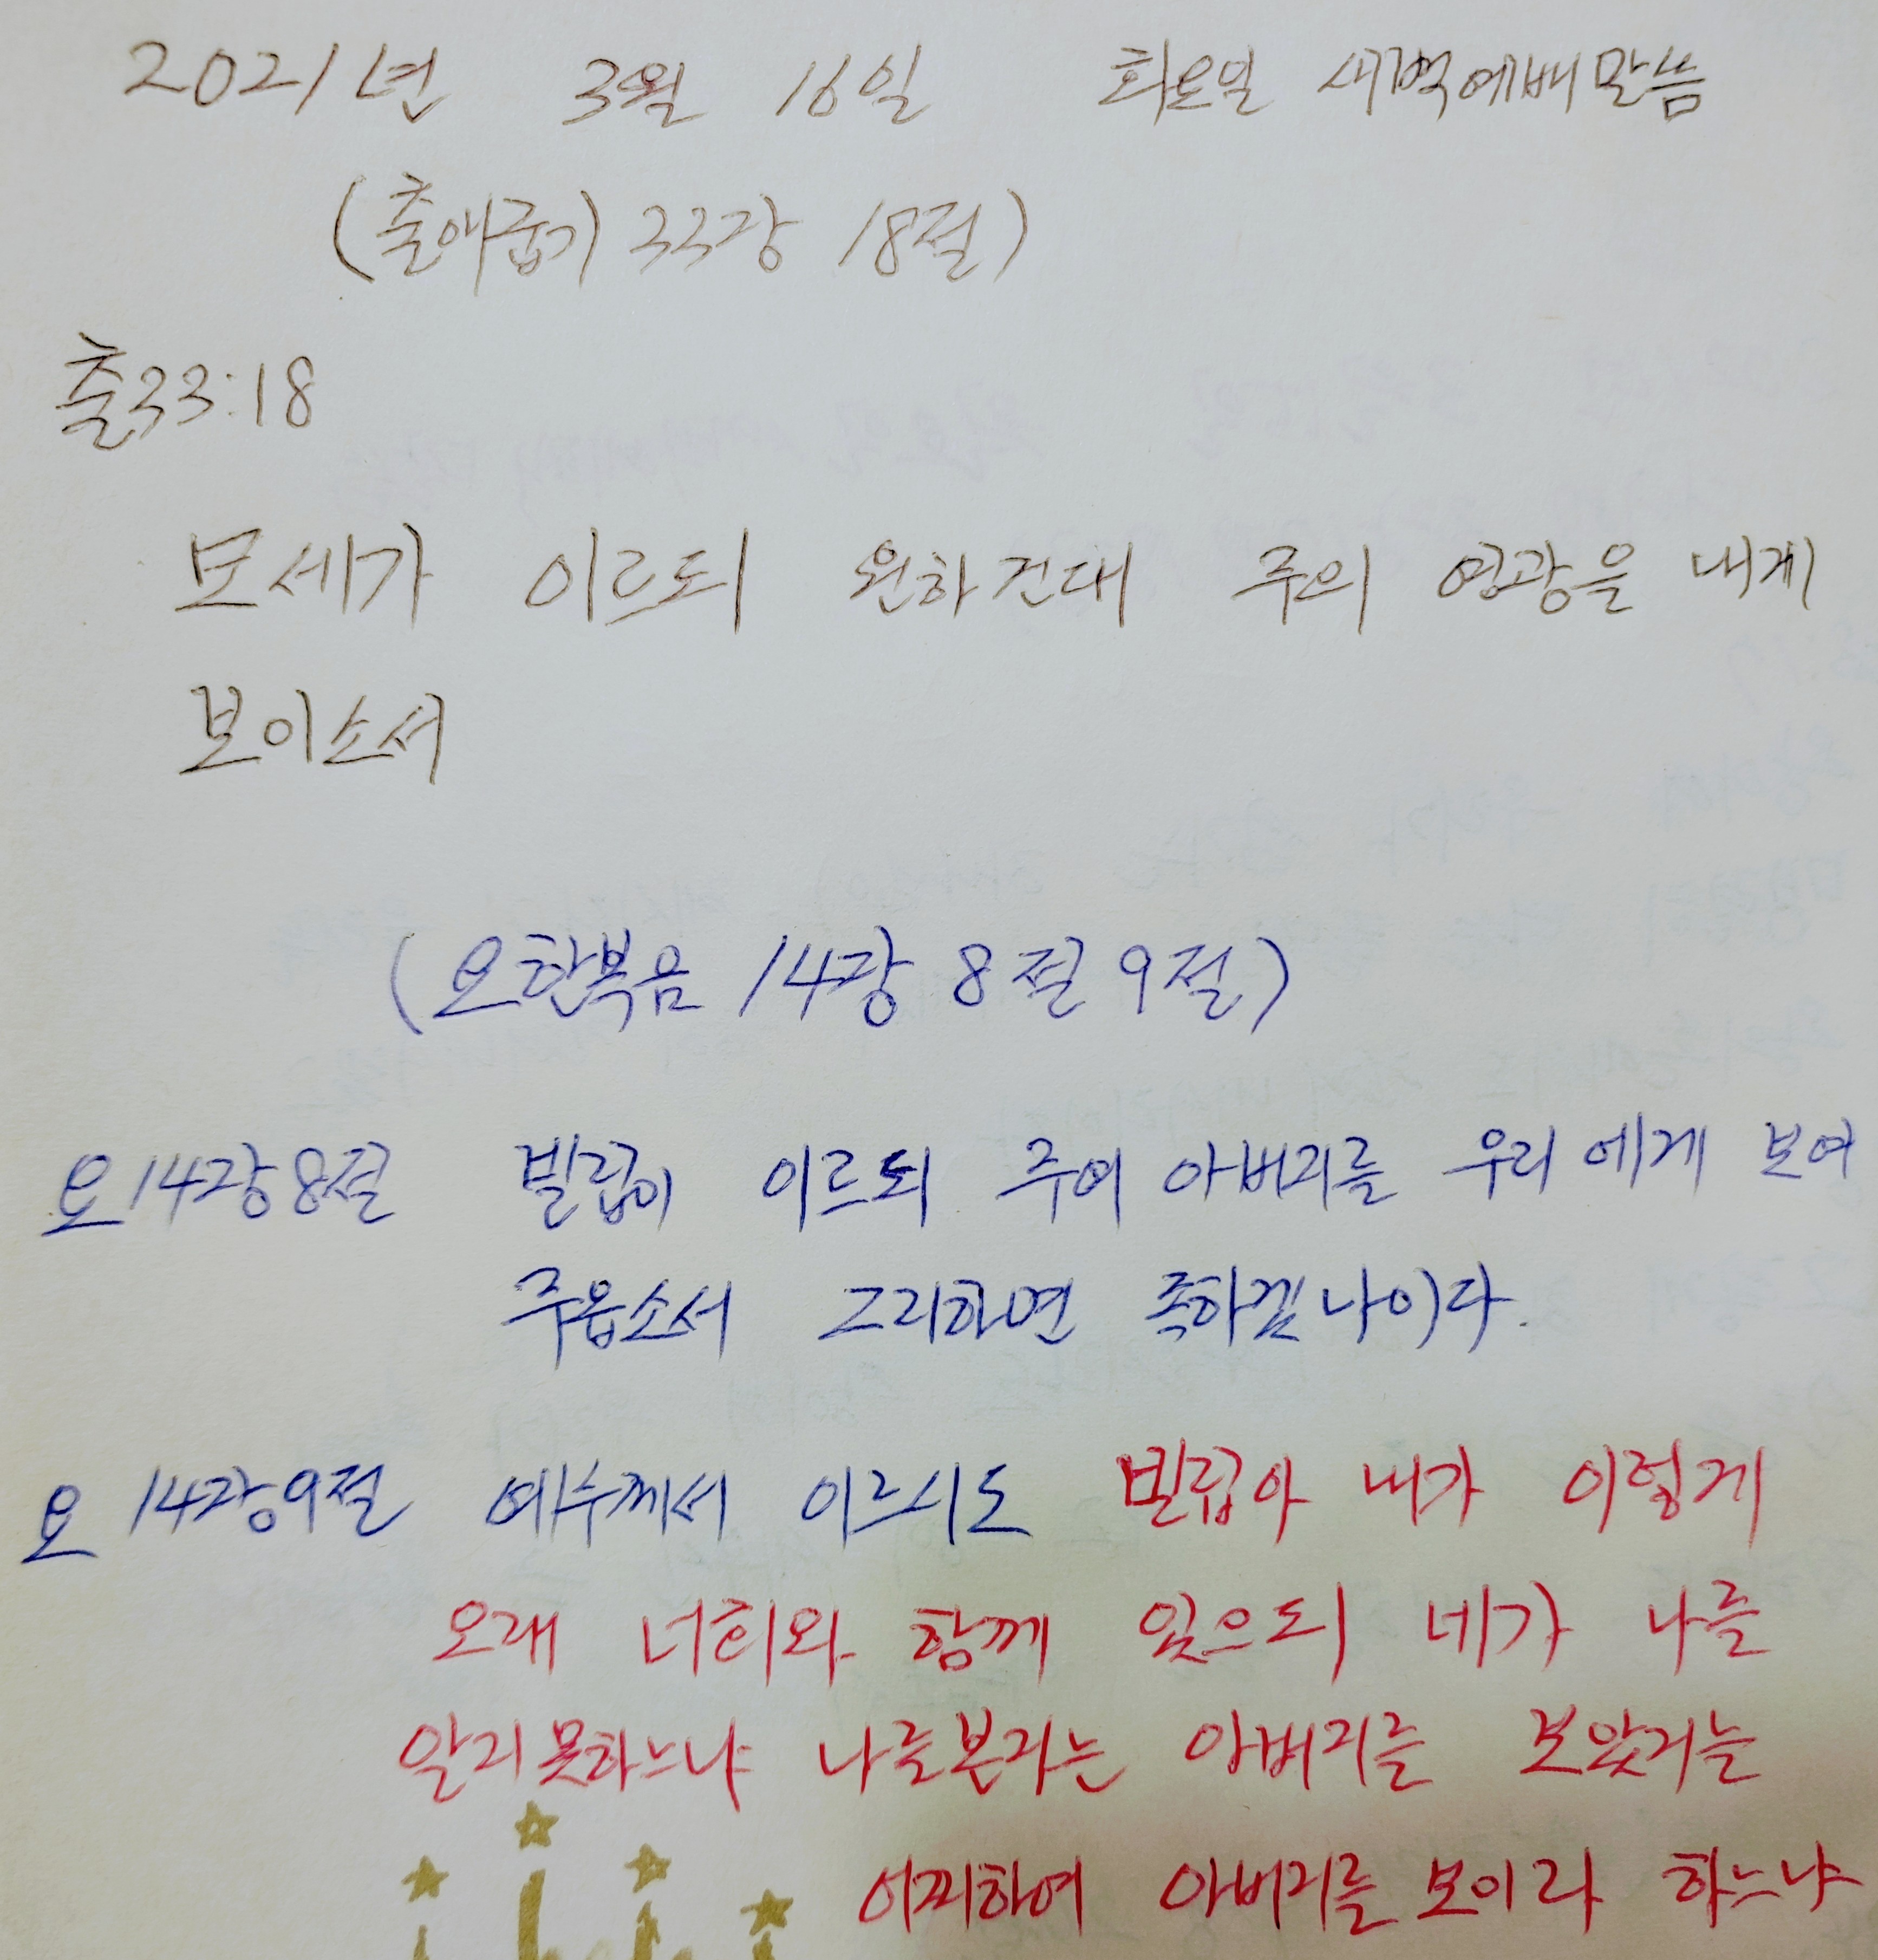 2021년 3월 16일 화요일 새벽예배말씀
(출애굽기 33장 18절)
출33:18
모세가 이르되 원하건대 주의 영광을 내게
보이소서
(요한복음 14장 8절 9절)
요14장8절 빌립이 이르되 주여 아버지를 우리에게 보여
주옵소서 그리하면 족하겠나이다.
요 14장9절 예수께서 이르시되 빌립아 내가 이렇게
오래 너희와 함께 있으되 네가 나를
알지못하느냐 나를본자는 아버지를 보았거늘
어찌하여 아버지를 보이라 하느냐